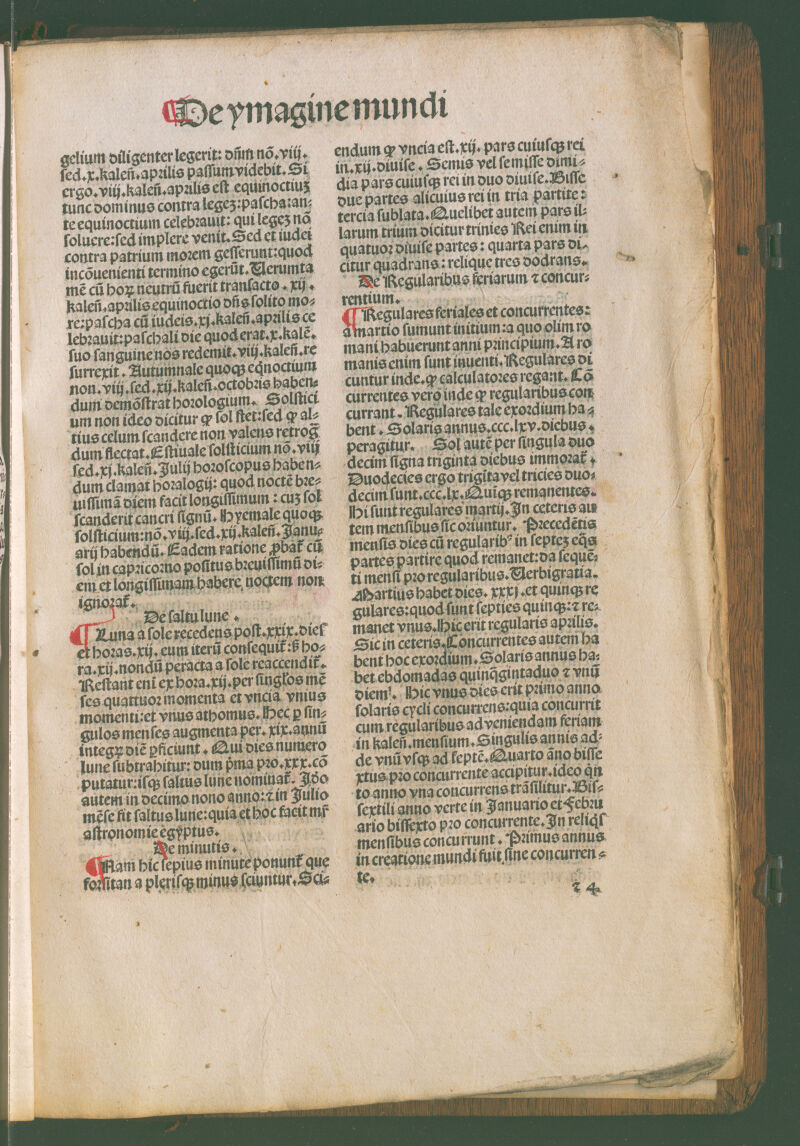 De ymagine mundi
gelium diligenter legerit: dñm nō.viij.
sed.x.kaleñ.aprilis passum videbit. Si
ergo.viij.kaleñ.aprilis est equinoctiuȝ
tunc dominus contra legeȝ:pascha:an-
te equinoctium celebrauit: qui legeȝ nō
soluere:sed implere venit. Sed et iudei
contra patrium morem gesserunt:quod
incōuenienti termino egerūt. Uerumta
mē cū hoꝝ neutrū fuerit transacto.xij.
kaleñ.aprilis equinoctio dñs solito mo-
re:pascha cū iudeis.xj.kaleñ.aprilis ce
lebrauit:paschali die quod erat.x.kalē.
suo sanguine nos redemit.viij.kaleñ.re
surrexit. Autumnale quoqꝫ eq̄noctium
non.viij.sed.xij.kaleñ.octobris haben-
dum demōstrat horologium. Solstici
um non ideo dicitur ꝙ sol stet:sed ꝙ al-
tius celum scandere non valens retrog̃
dum flectat. Estiuale solsticium nō.viij
sed.xj.kaleñ.Julij horoscopus haben-
dum clamat horalogij: quod noctē bre-
uissimā diem facit longissimum: cuȝ sol
scanderit cancri signū. Hyemale quoqꝫ
solsticium:nō.viij.sed.xij.kaleñ.Janu-
arij habendū. Eadem ratione ꝓbat̃ cū
sol in capricorno positus breuissimū di-
em et longissimam habere noctem non
ignorat̃.
De saltu lune.
¶ Luna a sole recedens post.xxix.dies
et horas.xij.eum iterū consequit̃:s̄ ho-
ra.xij.nondū peracta a sole reaccendit̃.
Restant eni ex hora.xij.per singl̃os mē
ses quattuor momenta et vncia vnius
momenti:et vnus athomus. Hec ꝑ sin-
gulos menses augmenta per.xix.annū
integꝝ diē ꝑficiunt. Qui dies numero
lune subtrahitur: dum pr̄ma pro.xxx.cō
putatur:isqꝫ saltus lune nominat̃. Id̄o
autem in decimo nono anno:⁊ in Julio
mēse fit saltus lune:quia et hoc facit mr̄
astronomie egyptus.
De minutis.
¶ Nam hic sepius minute ponunt̃ que
forsitan a plerisqꝫ minus sciuntur. Sci-
endum ꝙ vncia est.xij. pars cuiusqꝫ rei
in.xij.diuise. Semis vel semisse dimi-
dia pars cuiusqꝫ rei in duo diuise. Bisse
due partes alicuius rei in tria partite:
tercia sublata. Quelibet autem pars il-
larum trium dicitur trinies Rei enim in
quatuor diuise partes: quarta pars di-
citur quadrans: relique tres dodrans.
De Regularibus feriarum ⁊ concur-
rentium.
¶ Regulares feriales et concurrentes:
a martio sumunt initium:a quo olim ro
mani habuerunt anni principium. A ro
manis enim sunt inuenti. Regulares di
cuntur inde.ꝙ calculatores regant. Cō
currentes vero inde ꝙ regularibus con
currant. Regulares tale exordium ha-
bent. Solaris annus.ccc.lxv.diebus.
peragitur. Sol autē per singula duo
decim signa triginta diebus immorat̃.
Duodecies ergo trigīta vel tricies duo-
decim sunt.ccc.lx. Quiqꝫ remanentes.
Hi sunt regulares martij. In ceteris au
tem mensibus sic oriuntur. Precedētis
mensis dies cū regularibꝰ in septeȝ eq̄s
partes partire quod remanet:da sequē-
ti mensi pro regularibus. Uerbigratia.
Martius habet dies. xxxj.et quinqꝫ re
gulares:quod sunt septies quinqꝫ:⁊ re-
manet vnus. Hic erit regularis aprilis.
Sic in ceteris. Concurrentes autem ha
bent hoc exordium. Solaris annus ha-
bet ebdomadas quinq̄gintaduo ⁊ vnū
diem. Hic vnus dies erit primo anno
solaris cycli concurrens:quia concurrit
cum regularibus ad veniendam feriam
in kaleñ.mensium. Singulis annis ad-
de vnū vsqꝫ ad septē. Quarto āno bisse
xtus pro concurrente accipitur.ideo q̄n
to anno vna concurrens trāsilitur. Bis-
sextili anno verte in Januario et Febru
ario bissexto pro concurrente. In reliqs̄
mensibus concurrunt. Primus annus
in creatione mundi fuit sine concurren-
te.
⁊ 4